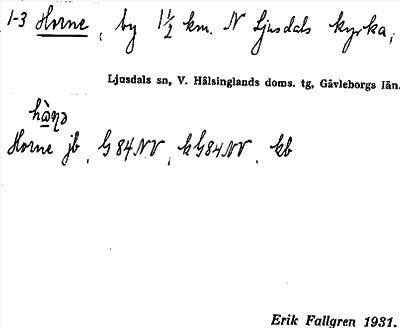 1-3 Horne, by 1½ km. N Ljusdals kyrka,
Ljusdals sn, V. Hälsinglands doms. tg, Gävleborgs län.
hà̱ɳə
Horne jb, G84NV, kG84NV, kb
Erik Fallgren 1931.